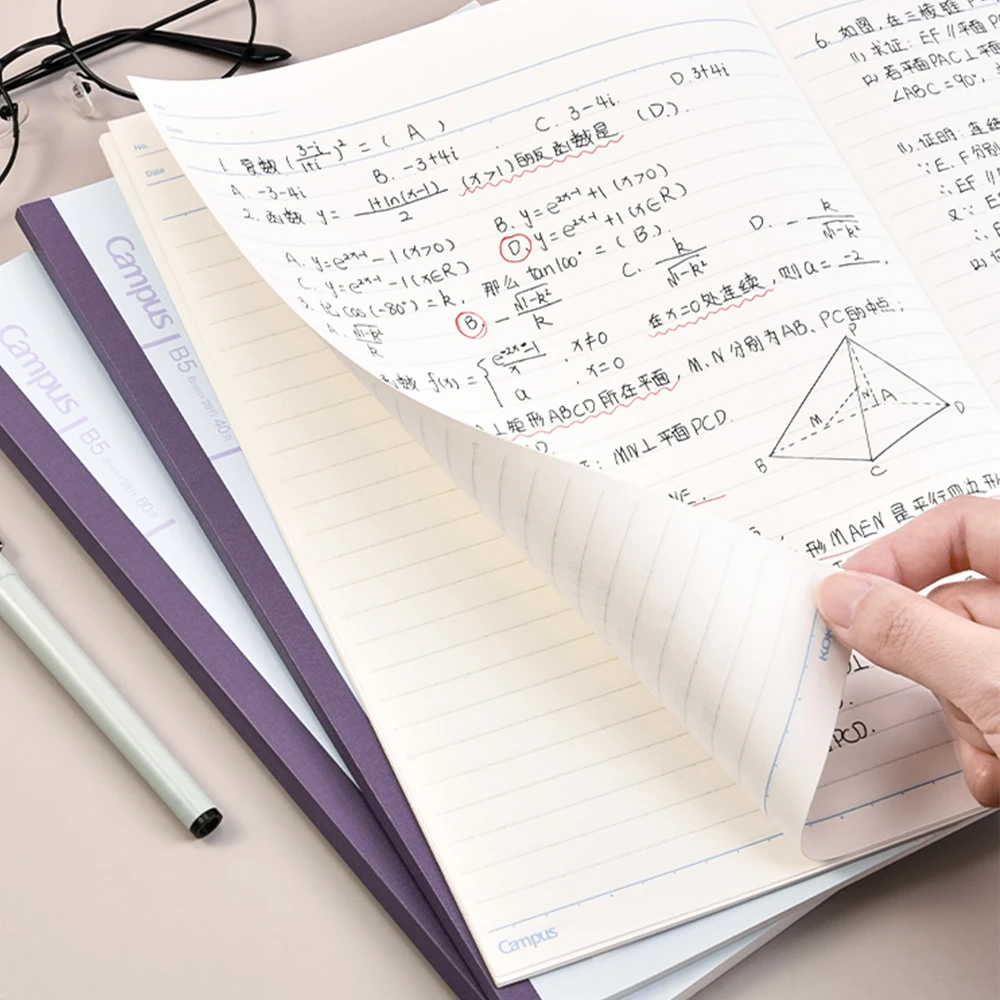 1. 复数 (3-i/1+i)² = ( A )
A. -3-4i B. -3+4i C. 3-4i. D. 3+4i
2. 函数 y = 1+ln(x-1)/2 (x>1)的反函数是 (D).
A. y=e^2x-1 - 1 (x>0) B. y=e^2x-1 + 1 (x>0)
C. y=e^2x-1 - 1 (x∈R) D. y=e^2x-1 + 1 (x∈R)
cos(-80°) = k, 那么 tan100° = ( B ).
A. √1-k²/k B. -√1-k²/k C. k/√1-k² D. -k/√1-k²
函数 f(x) = { e^2x-1/x , x≠0 在x=0处连续, 则a= -2 .
a , x=0
⊥矩形ABCD所在平面, M、N分别为AB、PC的中点;
D.
: MN⊥平面PCD.
P
N
A
M
D
B
C
形MAEN是平行四边形
PCD.
6. 如图, 在三棱锥P-
(1) 求证: EF∥平面
(2) 若平面PAC⊥平面
∠ABC=90°,
(1). 证明: 连结
∵E、F分别
∴EF∥
又∵
∴
No.
Date
Campus
Campus
B5
40
Campus
B5
80
KOK